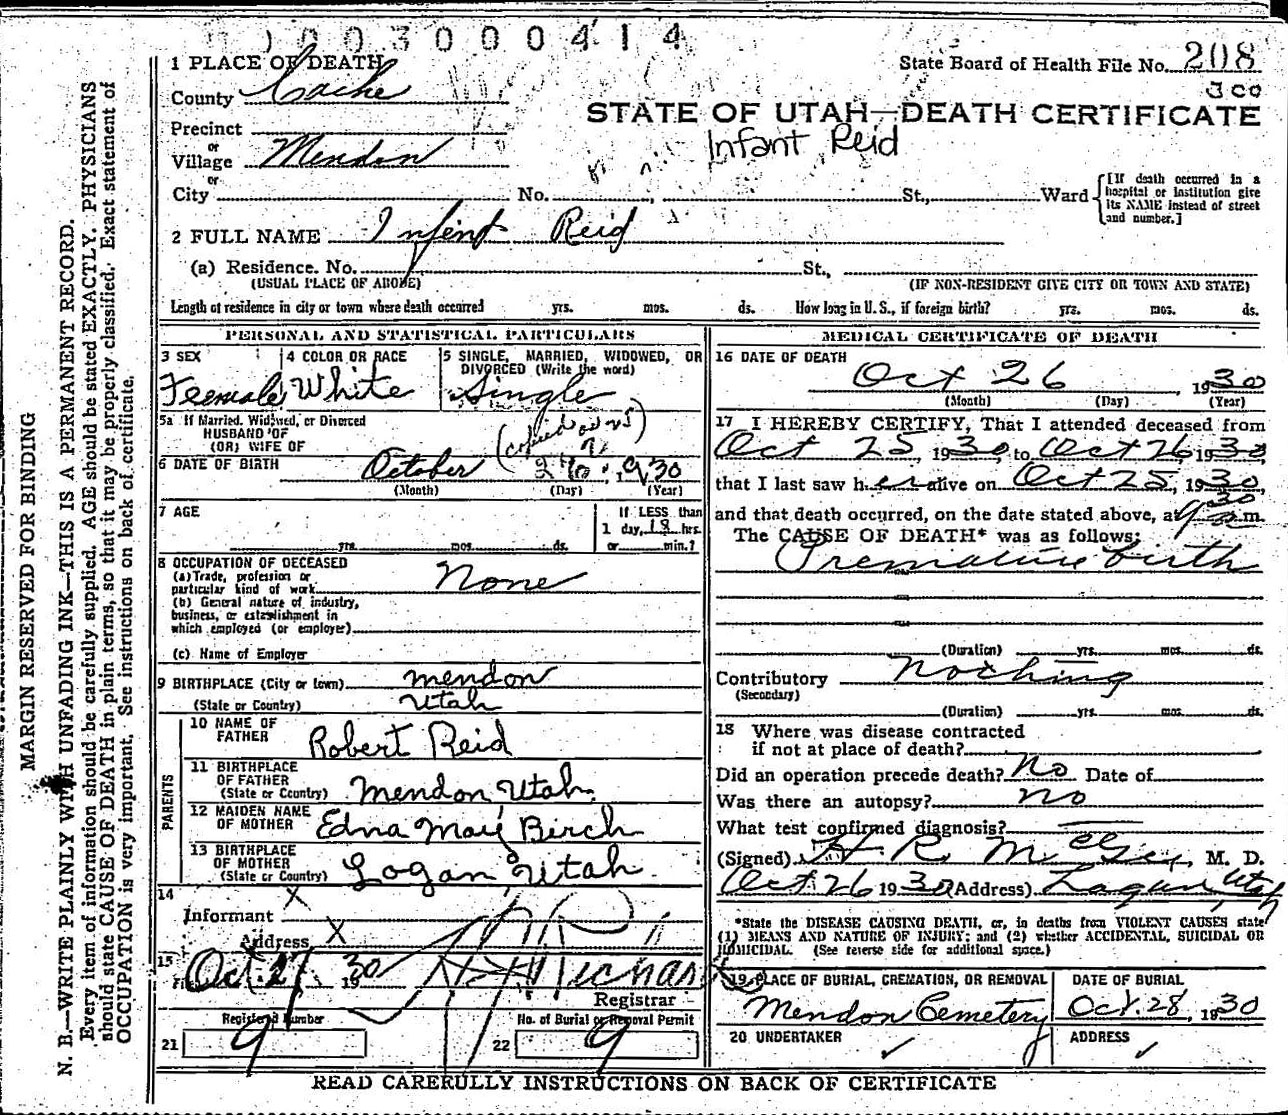 003000414
1 PLACE OF DEATH
State Board of Health File No. 208
300
County Cache
STATE OF UTAH—DEATH CERTIFICATE
Infant Reid
Precinct
or
Village Mendon
or
City No. St., Ward
[If death occurred in a
hospital or institution give
its NAME instead of street
and number.]
2 FULL NAME Infent Reid
(a) Residence. No. St.,
(USUAL PLACE OF ABODE) (IF NON-RESIDENT GIVE CITY OR TOWN AND STATE)
Length of residence in city or town where death occurred yrs. mos. ds. How long in U. S., if foreign birth? yrs. mos. ds.
PERSONAL AND STATISTICAL PARTICULARS
3 SEX
Feemale
4 COLOR OR RACE
White
5 SINGLE, MARRIED, WIDOWED, OR
DIVORCED (Write the word)
Single
5a If Married, Widowed, or Divorced
HUSBAND OF
(OR) WIFE OF
6 DATE OF BIRTH October 1930
(Month) (Day) (Year)
7 AGE
yrs. mos. ds.
If LESS than
1 day, 18 hrs.
or min.?
8 OCCUPATION OF DECEASED
(a) Trade, profession or
particular kind of work None
(b) General nature of industry,
business, or establishment in
which employed (or employer)
(c) Name of Employer
9 BIRTHPLACE (City or town) mendon
(State or Country) Utah
PARENTS
10 NAME OF
FATHER Robert Reid
11 BIRTHPLACE
OF FATHER
(State or Country) Mendon Utah
12 MAIDEN NAME
OF MOTHER Edna May Birch
13 BIRTHPLACE
OF MOTHER
(State or Country) Logan, Utah
14
Informant X
Address X
15
Oct. 27 1930
Registrar
Registered Number
21 9
No. of Burial or Removal Permit
22 9
MEDICAL CERTIFICATE OF DEATH
16 DATE OF DEATH
Oct 26, 1930
(Month) (Day) (Year)
17 I HEREBY CERTIFY, That I attended deceased from
Oct 25, 1930, to Oct 26 1930
that I last saw her alive on Oct 25, 1930,
and that death occurred, on the date stated above, at 9 30 m.
The CAUSE OF DEATH* was as follows:
Premature birth
(Duration) yrs. mos. ds.
Contributory Nothing
(Secondary)
(Duration) yrs. mos. ds.
18 Where was disease contracted
if not at place of death?
Did an operation precede death? No Date of
Was there an autopsy? no
What test confirmed diagnosis?
(Signed) H. R. McGee, M. D.
Oct 26 1930 (Address) Logan, Utah
*State the DISEASE CAUSING DEATH, or, in deaths from VIOLENT CAUSES state
(1) MEANS AND NATURE OF INJURY; and (2) whether ACCIDENTAL, SUICIDAL OR
HOMICIDAL. (See reverse side for additional space.)
19 PLACE OF BURIAL, CREMATION, OR REMOVAL
Mendon Cemetery
DATE OF BURIAL
Oct. 28, 1930
20 UNDERTAKER ✓
ADDRESS ✓
READ CAREFULLY INSTRUCTIONS ON BACK OF CERTIFICATE
MARGIN RESERVED FOR BINDING
N. B.—WRITE PLAINLY WITH UNFADING INK—THIS IS A PERMANENT RECORD.
Every item of information should be carefully supplied. AGE should be stated EXACTLY. PHYSICIANS
should state CAUSE OF DEATH in plain terms, so that it may be properly classified. Exact statement of
OCCUPATION is very important. See instructions on back of certificate.